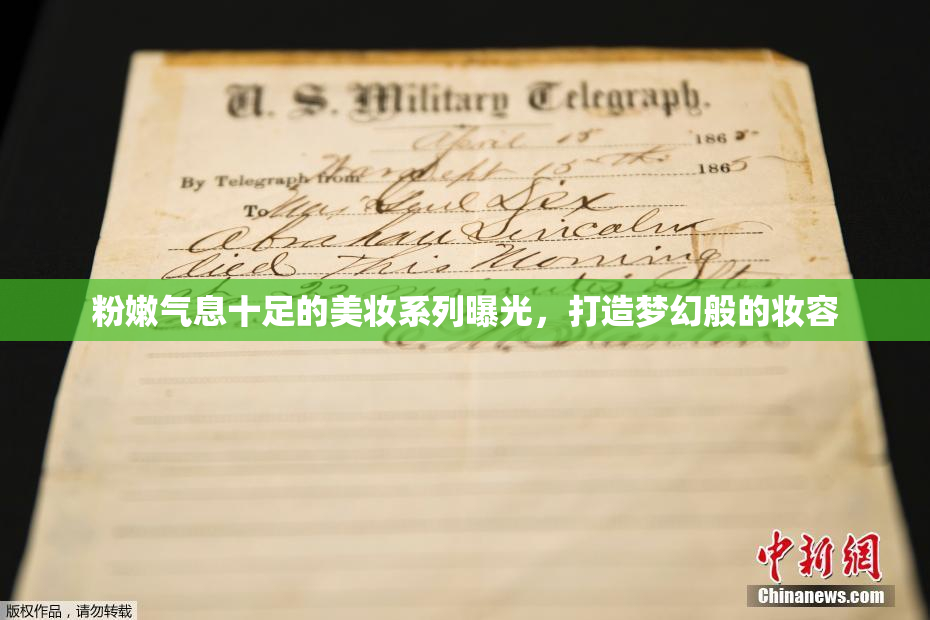 U. S. Military Telegraph.
April 15 1865
By Telegraph from War Dept 15th 1865
To Maj Genl Dix
Abraham Lincoln
died This Morning
at 22 minutes after
E. M. Stanton
粉嫩气息十足的美妆系列曝光，打造梦幻般的妆容
中新网
Chinanews.com
版权作品，请勿转载